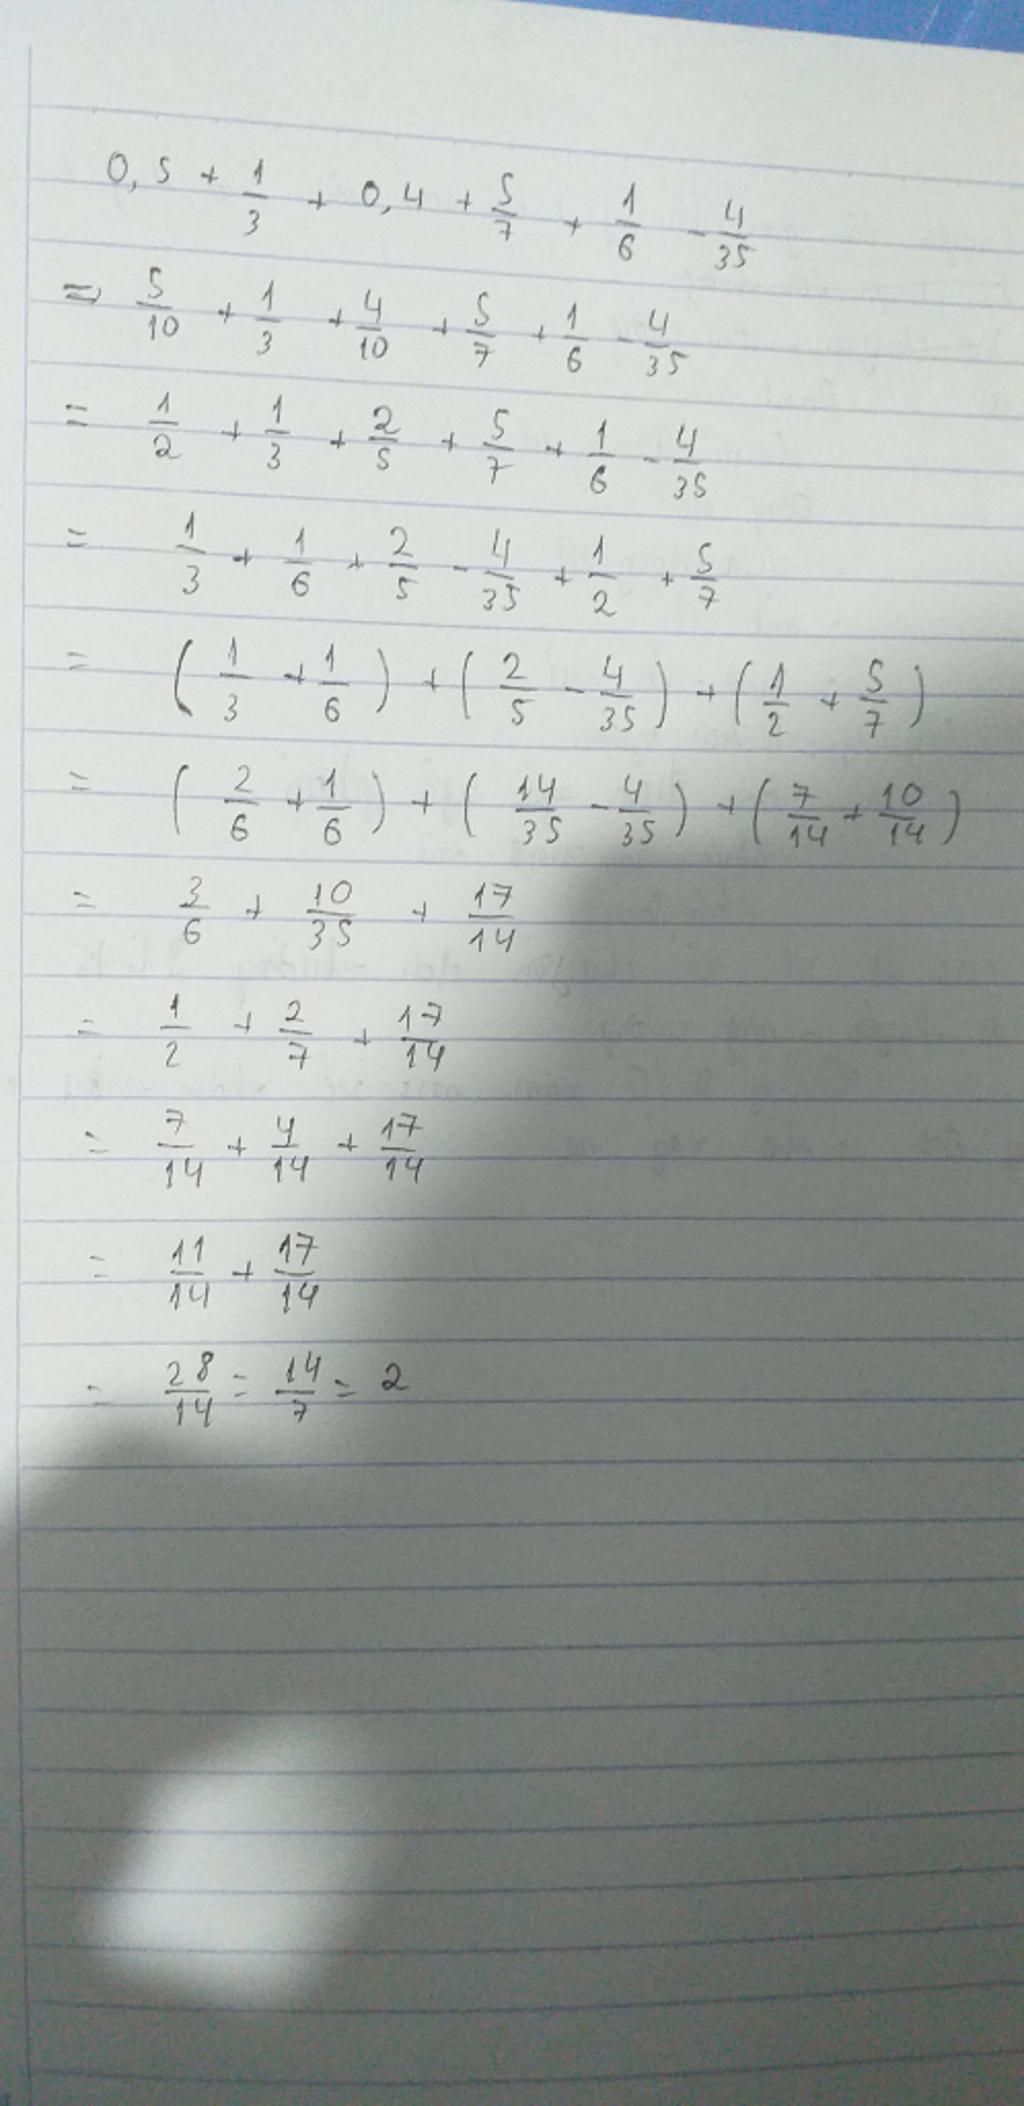 0,5 + 1/3 + 0,4 + 5/7 + 1/6 - 4/35
=> 5/10 + 1/3 + 4/10 + 5/7 + 1/6 - 4/35
= 1/2 + 1/3 + 2/5 + 5/7 + 1/6 - 4/35
= 1/3 + 1/6 + 2/5 - 4/35 + 1/2 + 5/7
= (1/3 + 1/6) + (2/5 - 4/35) + (1/2 + 5/7)
= (2/6 + 1/6) + (14/35 - 4/35) + (7/14 + 10/14)
= 3/6 + 10/35 + 17/14
= 1/2 + 2/7 + 17/14
= 7/14 + 4/14 + 17/14
= 11/14 + 17/14
= 28/14 = 14/7 = 2